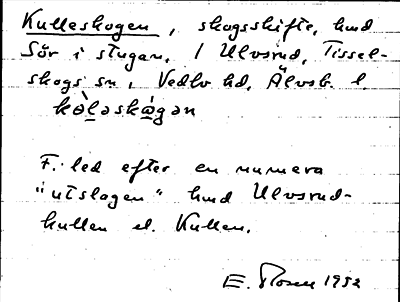 Kulleskogen, skogsskifte, hmd
Sör i stugan, 1 Ulvsrud, Tissel-
skogs sn, Vedbo hd, Älvsb. l.
kòl̲əskɷ́gən
F. led efter en numera
"utslagen" hmd Ulvsrud-
kullen el. Kullen.
E. Rosén 1932